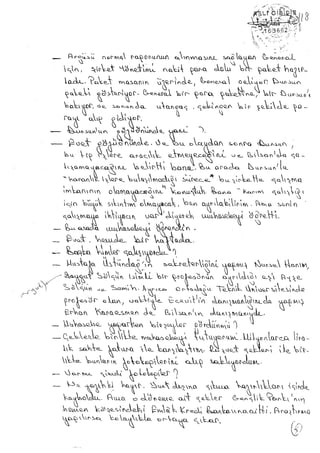 — Argüsü normal raporunun alınmasını sağlayan General
için, şirket yönetimi nakit para dolu bir paket hazır-
ladı. Paket masanın üzerinde, General geliyor. Dursun
paketi gösteriyor. General bir para paketine, bir Dursun'a
bakıyor, ve sonunda utangaç, çekingen bir şekilde pa-
rayı alıp gidiyor.
— Dursun'un gözü önünde yani?
— Evet gözü önünde. Ve bu olaydan sonra Dursun,
bu tip işlere aracılık etmeyeceğini ve Bilsan'da ça-
lışamayacağını belirtti bana. Bu arada Dursun'la
"karanlık işlere bulaşılmadığı sürece" bu şirkette çalışma
imkanının olamayacağını konuştuk. Bana "Karım çalıştığı
için büyük sıkıntım olmayacak, ben ayrılabilirim. Ama senin
çalışmaya ihtiyacın var" diyerek muhasebeyi öğretti.
— Bu arada muhasebeyi öğrendin.
— Evet, hemde bir haftada.
— Başka kimler çalışıyordu?
— Mustafa Üstündağ'ın sekreterliğini yapmış Nursel Hanım,
Baygut Solgun isimli bir profesörün ayrıldığı eşi Ayşe
Solgun ve Semih. Ayrıca Ortadoğu Teknik Üniversitesinde
profesör olan, vaktiyle Ecevit'in danışmanlığını da yapmış
Erhan Karaesmen de Bilsan'ın danışmanıydı.
— Muhasebe yaparken birşeyler gördünmü?
— Çeklerle birlikte muhasebeyi tutuyorum. Milyonlarca lira-
lık sahte fatura ile karşılaştım. Rüşvet çekleri ile bir-
likte bunların fotokopilerini alıp saklıyordum.
— Varmı şimdi fotokopiler?
— Ne yazıkki hayır. Yurt dışına çıkma hazırlıkları içinde
kayboldu. Ama o döneme ait çekler Gençlik Parkı'nın
hemen köşesindeki Emlâk Kredi Bankasına aitti. Araştırma
yapılırsa kolaylıkla ortaya çıkar.